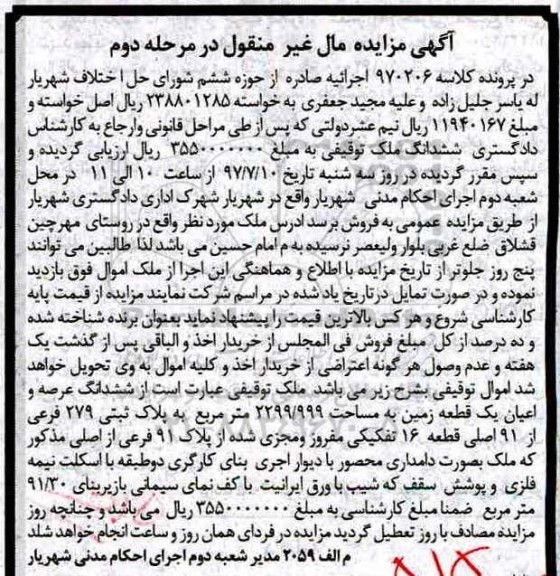 آگهی مزایده مال غیر منقول در مرحله دوم
در پرونده کلاسه ۹۷۰۲۰۶ اجرائیه صادره از حوزه ششم شورای حل اختلاف شهریار
له یاسر جلیل زاده و علیه مجید جعفری به خواسته ۲۳۸۸۰۱۲۸۵ ریال اصل خواسته و
مبلغ ۱۱۹۴۰۱۶۷ ریال نیم عشردولتی که پس از طی مراحل قانونی وارجاع به کارشناس
دادگستری ششدانگ ملک توقیفی به مبلغ ۳۵۵۰۰۰۰۰۰۰ ریال ارزیابی گردیده و
سپس مقرر گردیده در روز سه شنبه تاریخ ۹۷/۷/۱۰ از ساعت ۱۰ الی ۱۱ در محل
شعبه دوم اجرای احکام مدنی شهریار واقع در شهریار شهرک اداری دادگستری شهریار
از طریق مزایده عمومی به فروش برسد ادرس ملک مورد نظر واقع در روستای مهرچین
قشلاق ضلع غربی بلوار ولیعصر نرسیده به م امام حسین می باشد لذا طالبین می توانند
پنج روز جلوتر از تاریخ مزایده با اطلاع و هماهنگی این اجرا از ملک اموال فوق بازدید
نموده و در صورت تمایل درتاریخ یاد شده در مراسم شرکت نمایند مزایده از قیمت پایه
کارشناسی شروع و هر کس بالاترین قیمت را پیشنهاد نماید بعنوان برنده شناخته شده
و ده درصد از کل مبلغ فروش فی المجلس از خریدار اخذ و الباقی پس از گذشت یک
هفته و عدم وصول هر گونه اعتراضی از خریدار اخذ و کلیه اموال به وی تحویل خواهد
شد اموال توقیفی بشرح زیر می باشد ملک توقیفی عبارت است از ششدانگ عرصه و
اعیان یک قطعه زمین به مساحت ۲۲۹۹/۹۹۹ متر مربع به پلاک ثبتی ۲۷۹ فرعی
از ۹۱ اصلی قطعه ۱۶ تفکیکی مفروز ومجزی شده از پلاک ۹۱ فرعی از اصلی مذکور
که ملک بصورت دامداری محصور با دیوار اجری بنای کارگری دوطبقه با اسکلت نیمه
فلزی و پوشش سقف که شیب با ورق ایرانیت با کف نمای سیمانی بازیربنای ۹۱/۳۰
متر مربع ضمنا مبلغ کارشناسی به مبلغ ۳۵۵۰۰۰۰۰۰۰ ریال می باشد و چنانچه روز
مزایده مصادف با روز تعطیل گردید مزایده در فردای همان روز و ساعت انجام خواهد شد
م الف ۲۰۵۹ مدیر شعبه دوم اجرای احکام مدنی شهریار